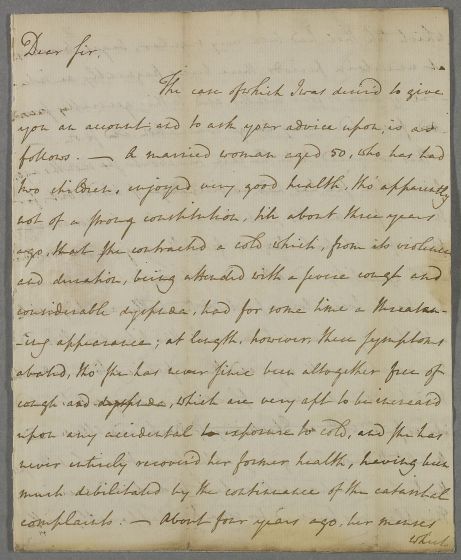 Dear Sir.
The case of which I was desir'd to give
you an account, and to ask your advice upon, is as
follows. — A married woman aged 50, who has had
two children, enjoyed very good health, tho' apparently
not of a strong constitution, till about three years
ago, that she contracted a cold which, from its violence
and duration, being attended with a severe cough and
considerable dyspnœa, had for some time a threaten-
-ing appearance; at length, however, these symptoms
abated, tho' she has never since been altogether free of
cough and dyspnœa, which are very apt to be increased
upon any accidental to exposure to cold, and she has
never entirely recover'd her former health, having been
much debilitated by the continuance of the catarrhal
complaints. — About four years ago, her menses
which